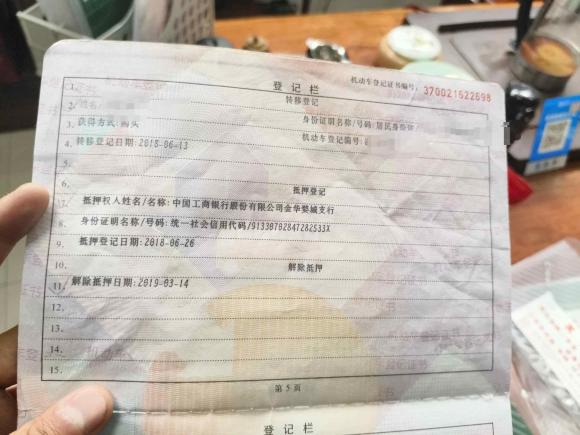 机动车登记证书编号: 370021622698
登记栏
1.
转移登记
2. 姓名/
身份证明名称/号码:居民身份证
3. 获得方式:购买
机动车登记编号:
4. 转移登记日期:2018-06-13
5.
6.
抵押登记
7. 抵押权人姓名/名称:中国工商银行股份有限公司金华婺城支行
8. 身份证明名称/号码:统一社会信用代码/91330702847282533X
9. 抵押登记日期:2018-06-26
10.
解除抵押
11. 解除抵押日期:2019-03-14
12.
13.
14.
15.
第5页
登记栏